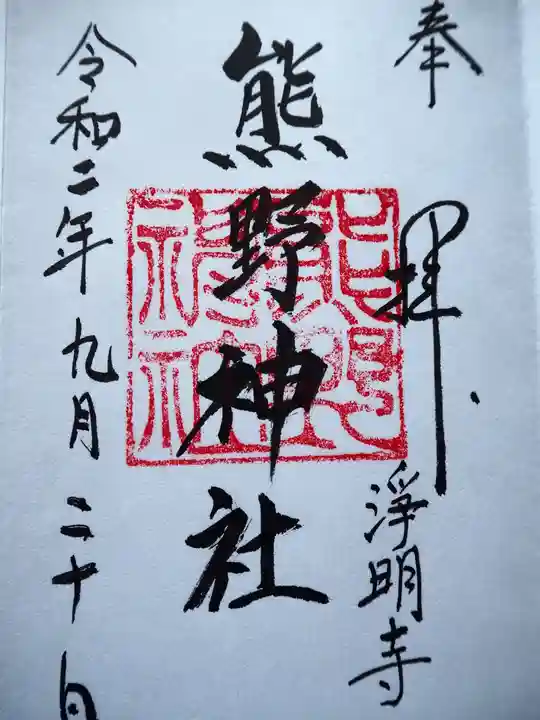 奉拝
淨明寺
熊野神社
令和二年九月二十日